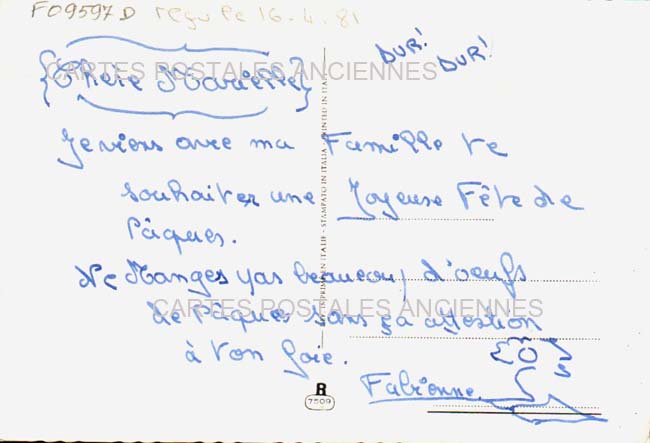 F09597D reçu le 16.4.81
DUR! DUR!
{Chère Marielle}
CARTES POSTALES ANCIENNES
Je viens avec ma Famille te
souhaiter une Joyeuse Fête de
Pâques.
Ne Manges pas beaucoup d'oeufs
CARTES POSTALES ANCIENNES
de Pâques sans ça attention
à ton foie.
Fabienne
IMPRIMÉ EN ITALIE - STAMPATO IN ITALIA - PRINTED IN ITALY
R
7509